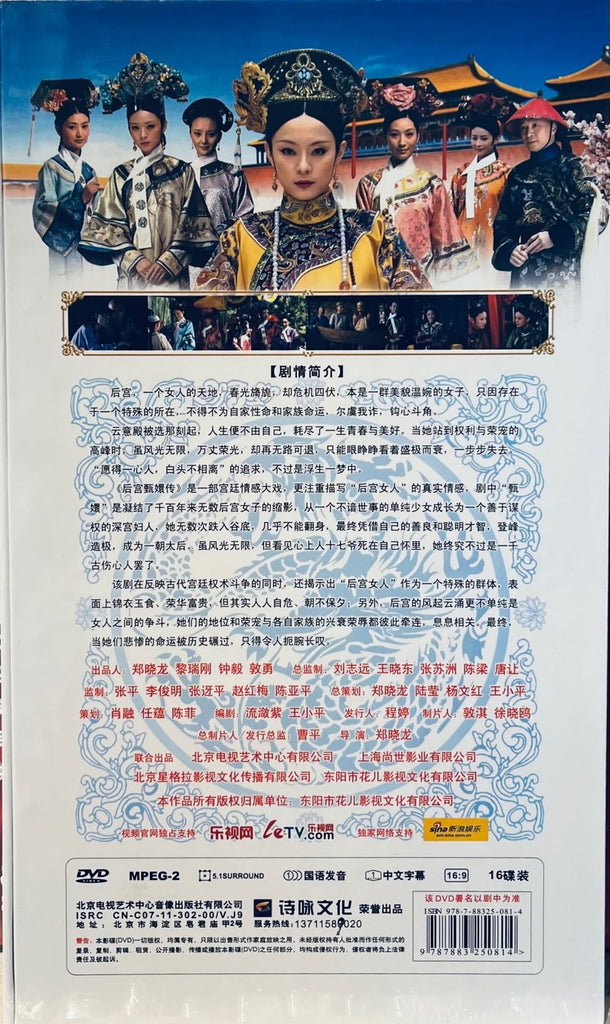 【剧情简介】
后宫，一个女人的天地，春光旖旎，却危机四伏，本是一群美貌温婉的女子，只因存在
于一个特殊的所在，不得不为自家性命和家族命运，尔虞我诈，钩心斗角。
云意殿被选那刻起，人生便不由自己，耗尽了一生青春与美好。当她站到权利与荣宠的
高峰时，虽风光无限，万丈荣光，却再无路可退，只能眼睁睁看着盛极而衰，一步步失去。
“愿得一心人，白头不相离”的追求，不过是浮生一梦中。
《后宫甄嬛传》是一部宫廷情感大戏，更注重描写“后宫女人”的真实情感，剧中“甄
嬛”是凝结了千百年来无数后宫女子的缩影，从一个不谙世事的单纯少女成长为一个善于谋
权的深宫妇人，她无数次跌入谷底，几乎不能翻身，最终凭借自己的善良和聪明才智，登峰
造极，成为一朝太后。虽风光无限，但看见心上人十七爷死在自己怀里，她终究不过是一千
古伤心人罢了。
该剧在反映古代宫廷权术斗争的同时，还揭示出“后宫女人”作为一个特殊的群体，表
面上锦衣玉食、荣华富贵，但其实人人自危、朝不保夕；另外，后宫的风起云涌更不单纯是
女人之间的争斗，她们的地位和荣宠与各自家族的兴衰荣辱都彼此牵连，息息相关。最终，
当她们悲惨的命运被历史碾过，只得令人扼腕长叹。
出品人：郑晓龙 黎瑞刚 钟毅 敦勇 总监制：刘志远 王晓东 张苏洲 陈梁 唐让
监制：张平 李俊明 张迈平 赵红梅 陈亚平 总策划：郑晓龙 陆莹 杨文红 王小平
策划：肖融 任蕴 陈菲 编剧：流潋紫 王小平 发行人：程婷 制片人：敦淇 徐晓鸥
总制片人/发行总监：曹平 导演：郑晓龙
联合出品 北京电视艺术中心有限公司 上海尚世影业有限公司
北京星格拉影视文化传播有限公司 东阳市花儿影视文化有限公司
本作品所有版权归属单位：东阳市花儿影视文化有限公司
视频官网独占支持 乐视网 LeTV.com 乐视网 独家网络支持 sina 新浪娱乐 ent.sina.com.cn
DVD VIDEO MPEG-2 5.1SURROUND 国语发音 中文字幕 16:9 16碟装
北京电视艺术中心音像出版社有限公司
ISRC CN-C07-11-302-00/V.J9
地址：北京市海淀区皂君庙甲2号
诗咏文化 荣誉出品
服务热线：13711589020
该DVD署名以剧中为准
ISBN 978-7-88325-081-4
9 787883 250814 >
警告：本影碟(DVD)一切版权，均属专有，只限以出售形式作家庭放映之用，未经版权持有人批准而作任何形式的
复录、复制、剪辑、租赁、公开播影、传播或播放本影碟(DVD)之任何部分，均构成侵权行为，侵权者将负上法律
责任及被起诉。